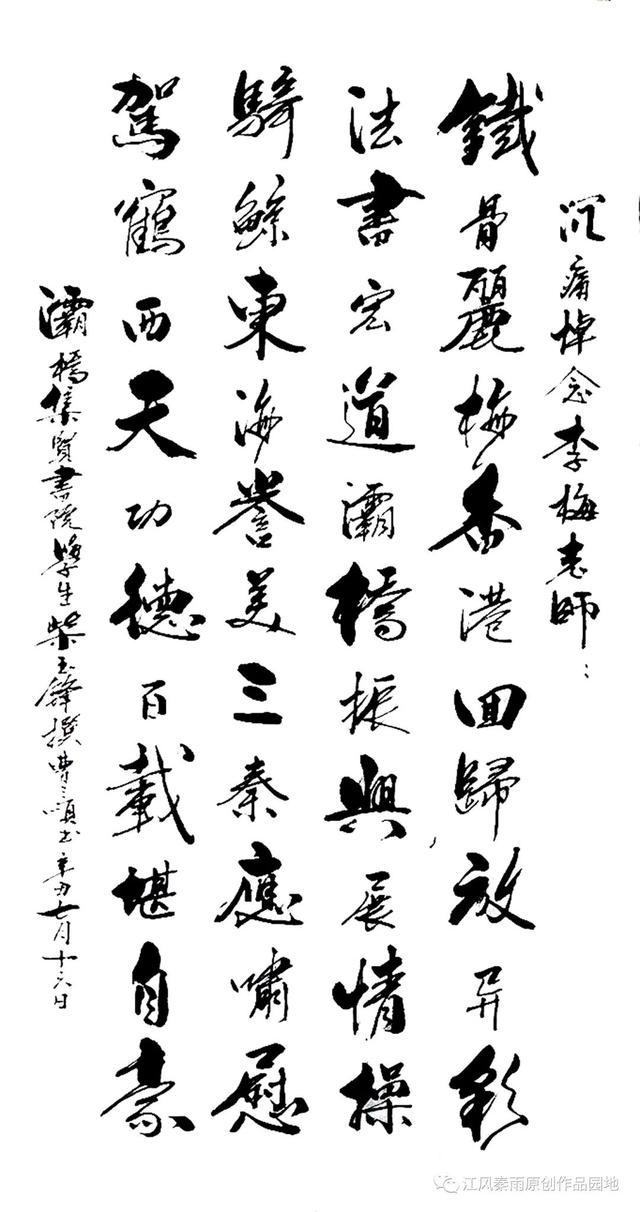 沉痛悼念李梅老师：
鐵骨麗梅香港回歸放异彩
法書宏道灞橋振興展情操
騎鯨東海譽美三秦應嘯慰
駕鶴西天功德百載堪自豪
灞橋集賢書院學生柴玉鋒撰曹三順书辛丑七月十六日
江风秦雨原创作品园地